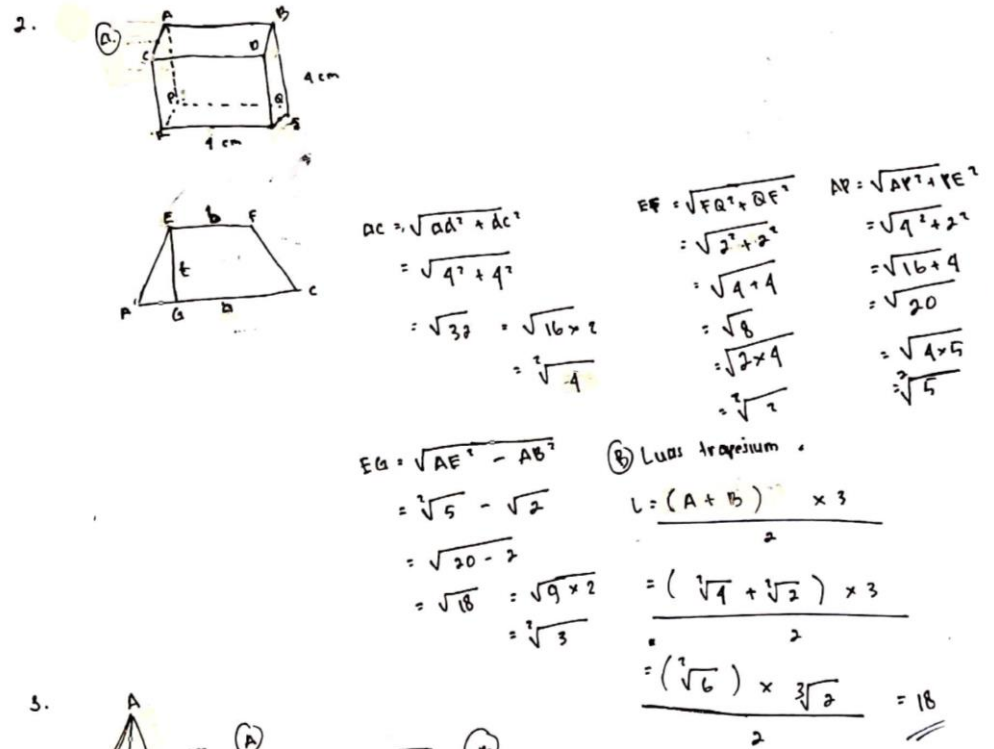 2.
a.
A
B
C
D
4 cm
P
Q
4 cm
E
b
F
t
A
G
a
C
ac = √ad² + dc²
= √4² + 4²
= √32 = √16 × 2
= ²√4
EF = √FQ² + QF²
= √2² + 2²
= √4 + 4
= √8
= √2×4
= ²√2
AP = √AP² + PE²
= √4² + 2²
= √16 + 4
= √20
= √4×5
= ²√5
EG = √AE² - AB²
= ²√5 - √2
= √20 - 2
= √18 = √9 × 2
= ²√3
B Luas trapesium .
L = (A + B) × 3
2
= (²√4 + ²√2) × 3
2
= (²√6) × ³√2 = 18
2
3.
A
A